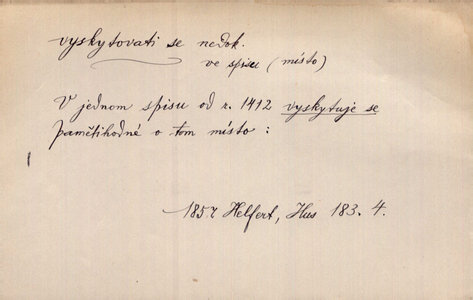 vyskytovati se nedok.
ve spisu (místo)
V jednom spisu od r. 1412 vyskytuje se
pamětihodné o tom místo :
1857 Helfert, Hus 183. 4.